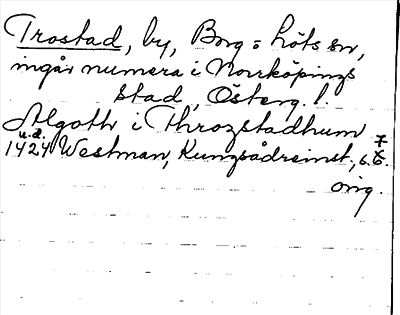 Trostad, by, Borg = Löts sn,
ingår numera i Norrköpings
stad, Österg. l.
Algoth i Throzstadhum
u.d. 1424 Westman, Kungsådreinst., s. 7
orig.